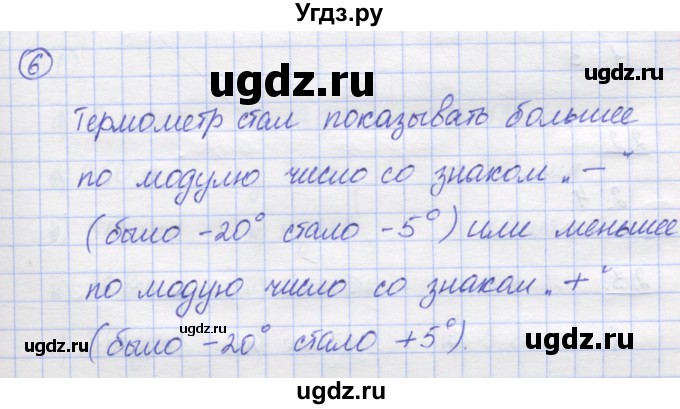 Угдз.ру
6
ugdz.ru
ugdz.ru
Термометр стал показывать большее
по модулю число со знаком „-“
(было -20° стало -5°) или меньшее
по модую число со знаком „+“
(было -20° стало +5°).
ugdz.ru
ugdz.ru
ugdz.ru
ugdz.ru